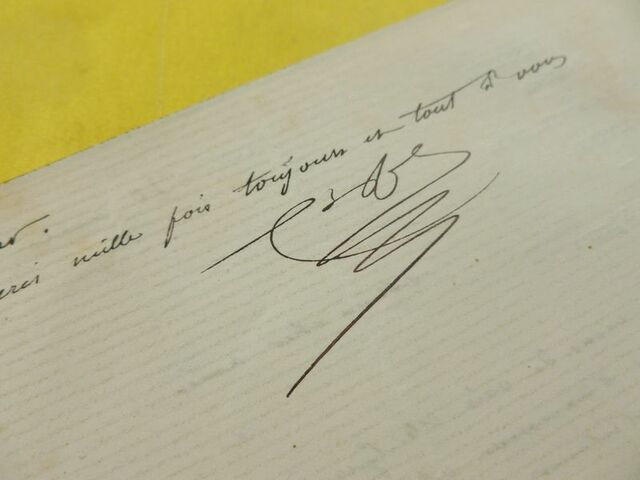 mille fois toujours et tout à vous